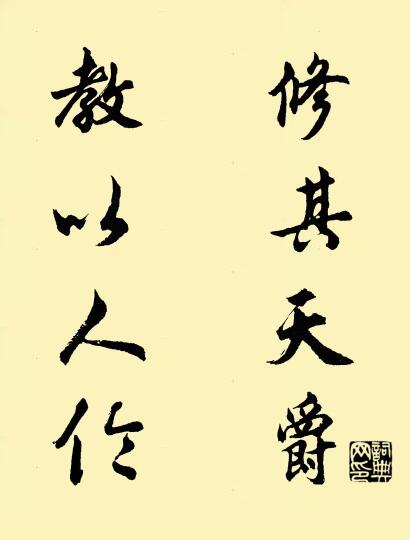 修其天爵
教以人伦
詞典网印